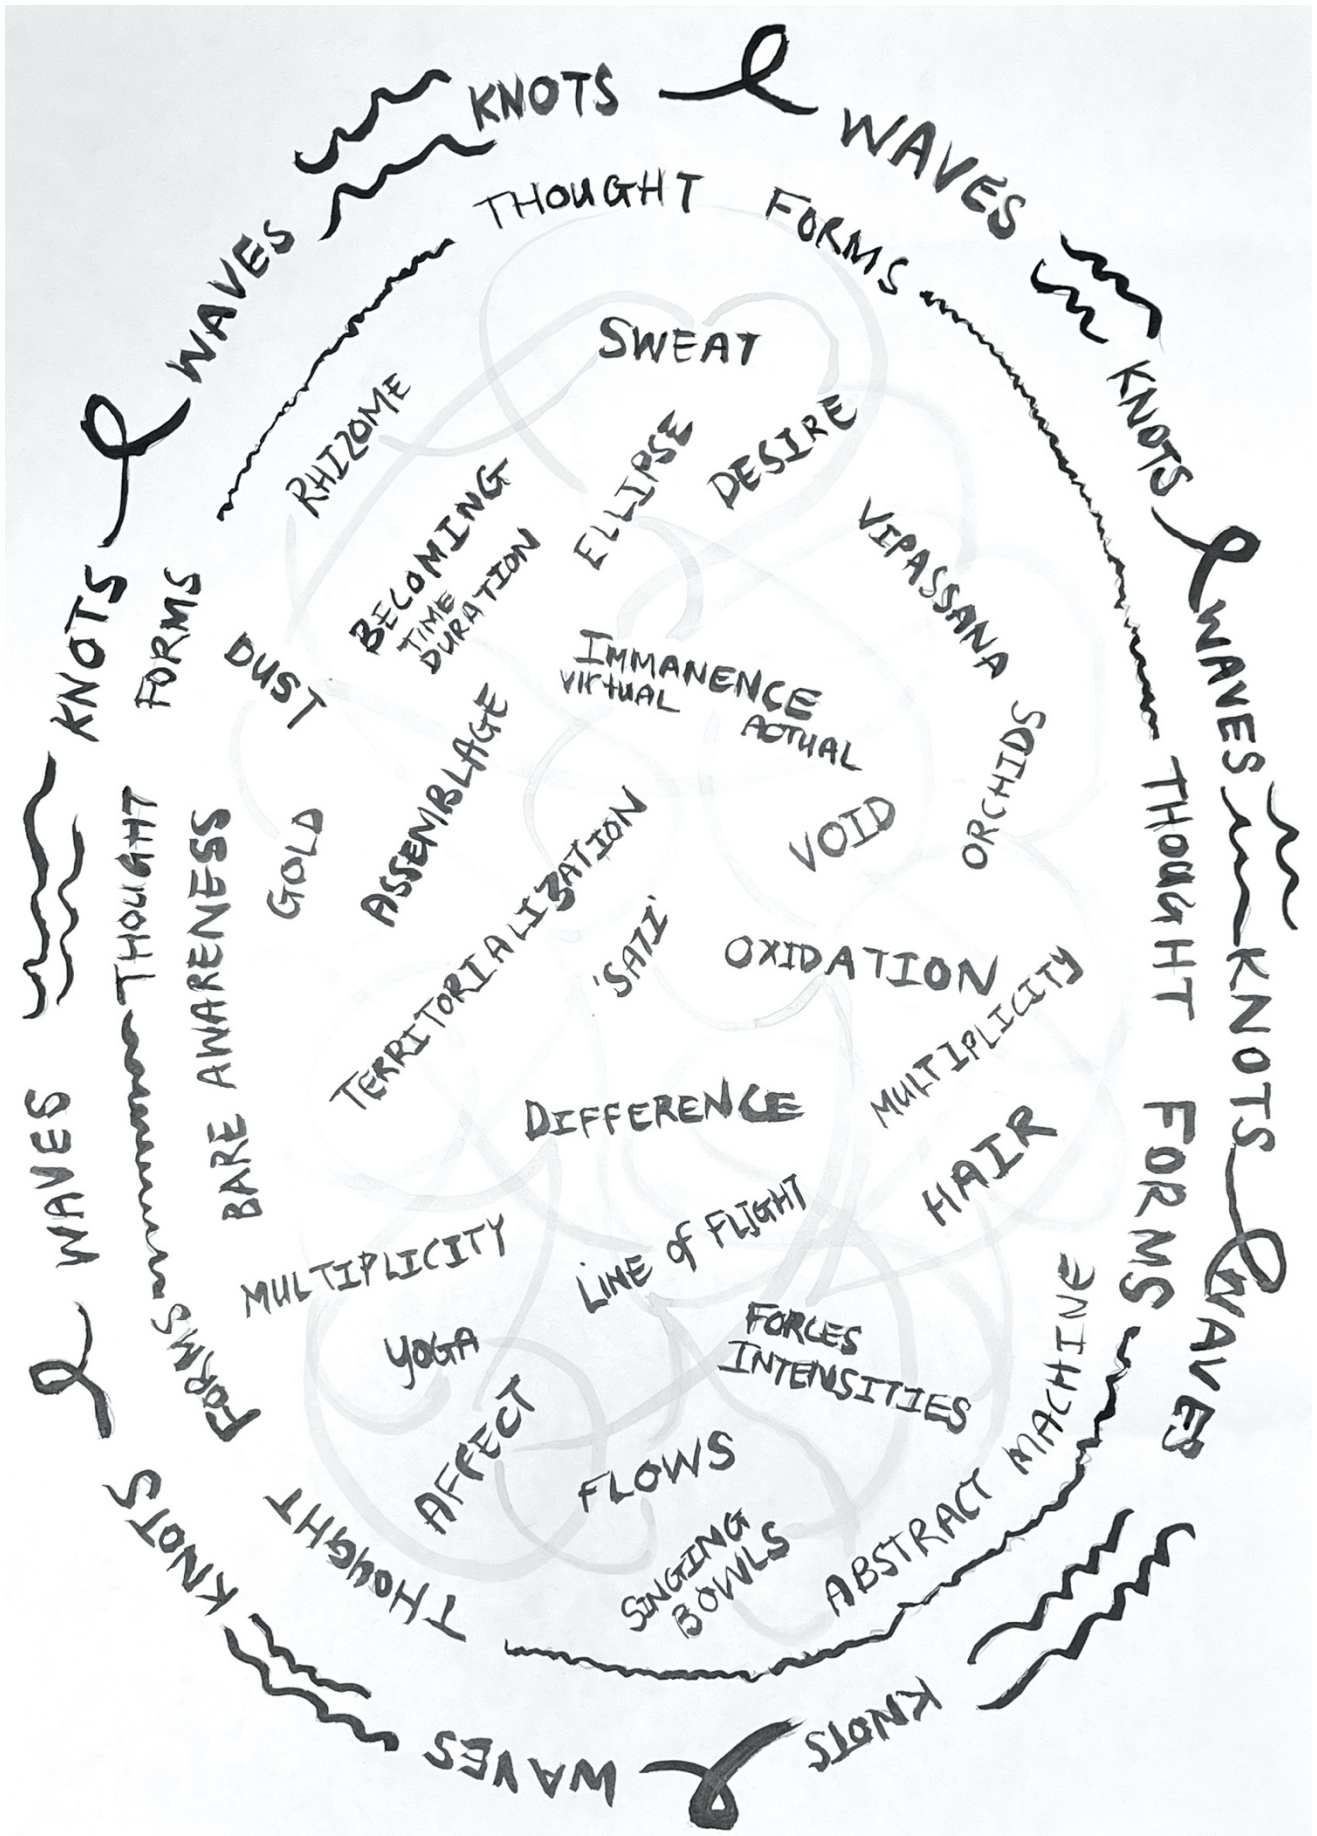 KNOTS
WAVES
KNOTS
WAVES
KNOTS
WAVES
KNOTS
WAVES
KNOTS
WAVES
KNOTS
WAVES
THOUGHT FORMS
THOUGHT FORMS
THOUGHT FORMS
THOUGHT FORMS
SWEAT
RHIZOME
BECOMING
TIME
DURATION
ELLIPSE
DESIRE
VIPASSANA
DUST
IMMANENCE
VIRTUAL
ACTUAL
ORCHIDS
GOLD
ASSEMBLAGE
VOID
BARE AWARENESS
TERRITORIALIZATION
'SATI'
OXIDATION
MULTIPLICITY
DIFFERENCE
HAIR
MULTIPLICITY
LINE of FLIGHT
YOGA
FORCES
INTENSITIES
AFFECT
FLOWS
SINGING
BOWLS
ABSTRACT MACHINE